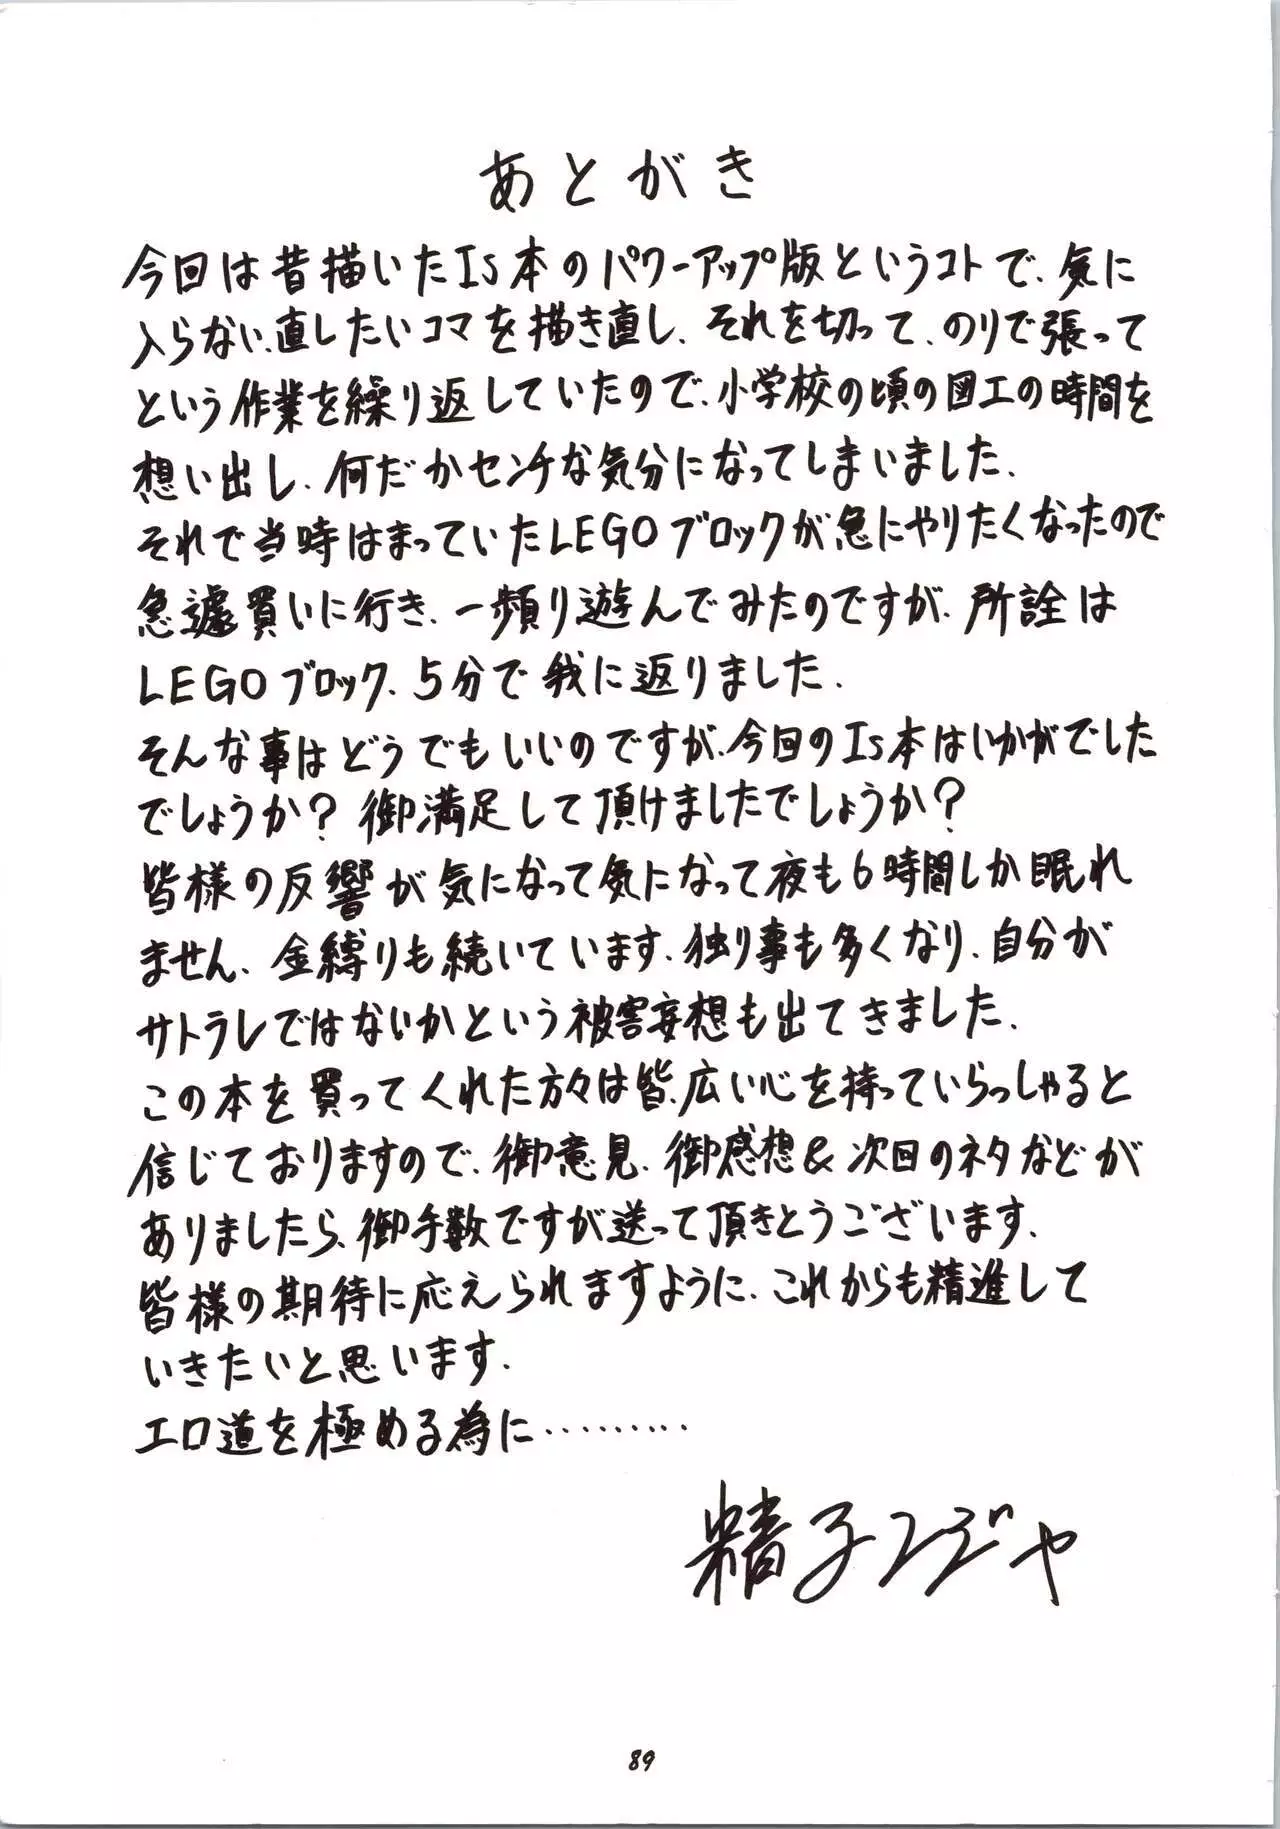 あとがき
今回は昔描いたIs本のパワーアップ版というコトで、気に
入らない、直したいコマを描き直し、それを切って、のりで張って
という作業を繰り返していたので、小学校の頃の図工の時間を
想い出し、何だかセンチな気分になってしまいました.
それで当時はまっていたLEGOブロックが急にやりたくなったので
急遽買いに行き、一頻り遊んでみたのですが、所詮は
LEGOブロック、5分で我に返りました.
そんな事はどうでもいいのですが、今回のIs本はいかがでした
でしょうか?御満足して頂けましたでしょうか?
皆様の反響が気になって気になって夜も6時間しか眠れ
ません、金縛りも続いています.独り事も多くなり、自分が
サトラレではないかという被害妄想も出てきました.
この本を買ってくれた方々は皆、広い心を持っていらっしゃると
信じておりますので、御意見、御感想&次回のネタなどが
ありましたら、御手数ですが送って頂きとうございます.
皆様の期待に応えられますように、これからも精進して
いきたいと思います.
エロ道を極める為に………
精子ンジャ
89